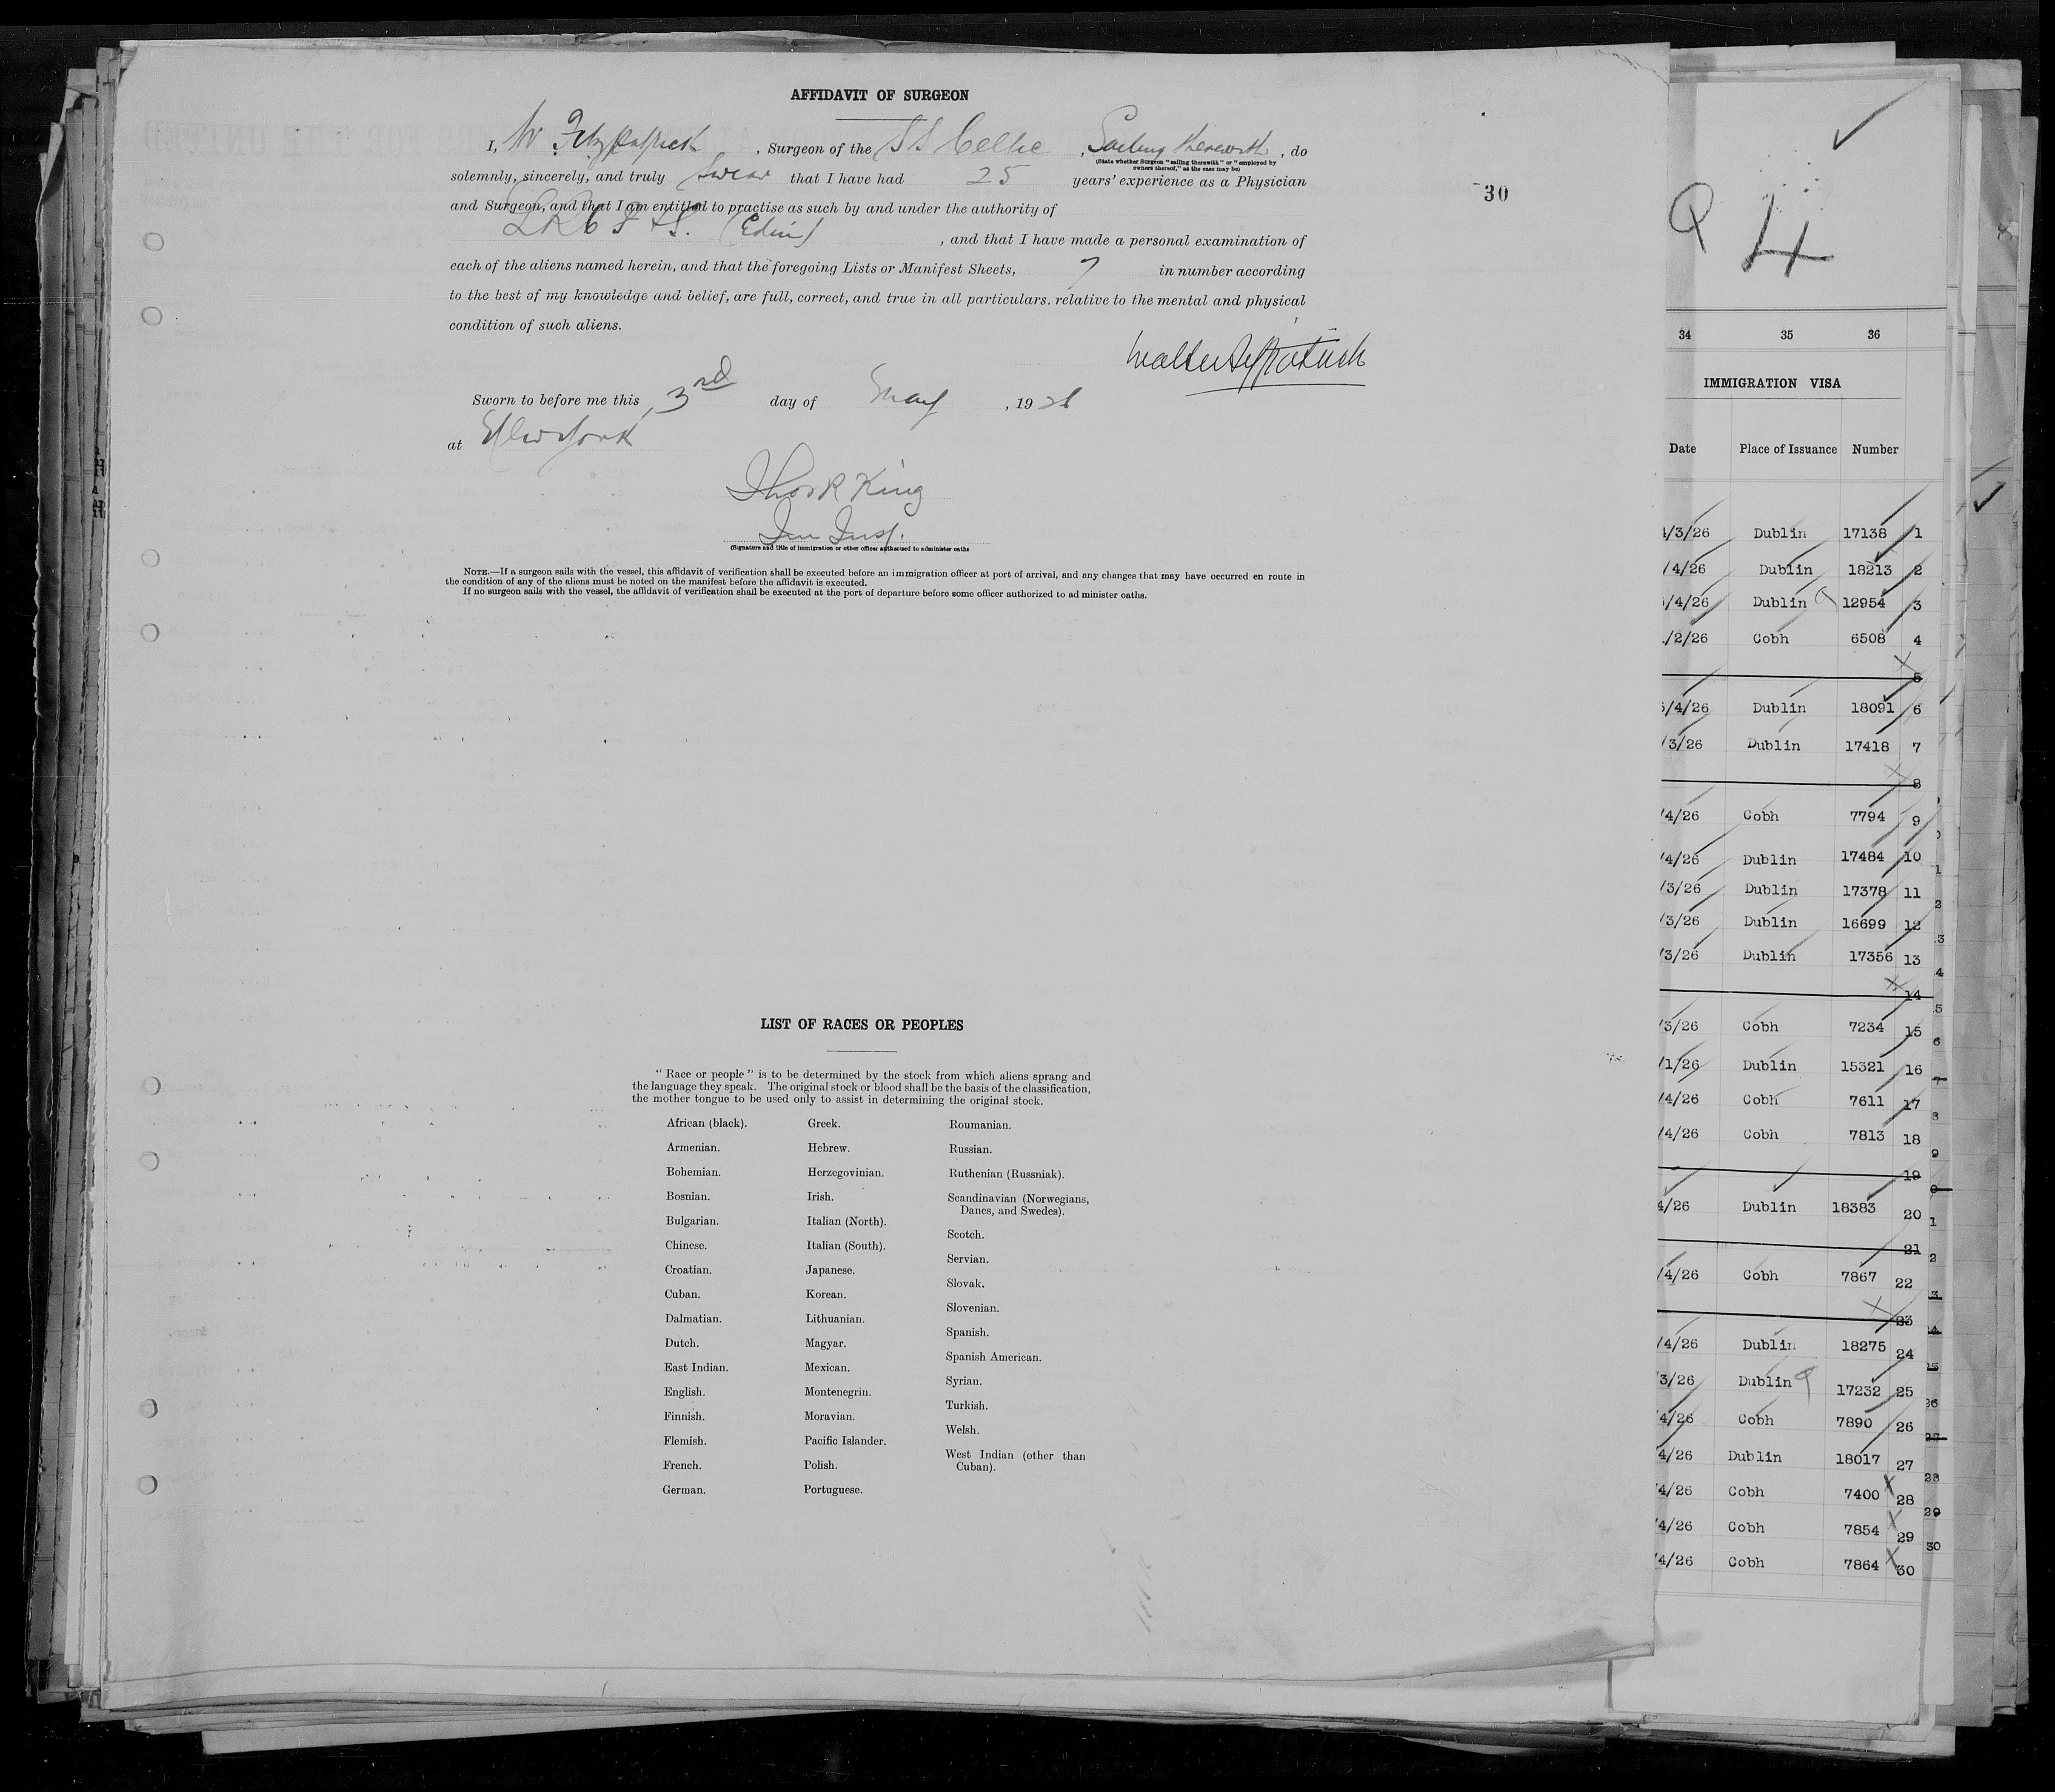 AFFIDAVIT OF SURGEON
I, W Fitzpatrick, Surgeon of the SS Celtic, Sailing therewith, do
(State whether Surgeon "sailing therewith" or "employed by
owners thereof," as the case may be)
solemnly, sincerely, and truly Swear that I have had 25 years' experience as a Physician
and Surgeon, and that I am entitled to practise as such by and under the authority of
LRCP & S. (Edin), and that I have made a personal examination of
each of the aliens named herein, and that the foregoing Lists or Manifest Sheets, 7 in number according
to the best of my knowledge and belief, are full, correct, and true in all particulars. relative to the mental and physical
condition of such aliens.
Walter Fitzpatrick
Sworn to before me this 3rd day of May, 1926
at New York
Thos R King
Im Insp.
(Signature and title of immigration or other officer authorised to administer oaths
NOTE.—If a surgeon sails with the vessel, this affidavit of verification shall be executed before an immigration officer at port of arrival, and any changes that may have occurred en route in
the condition of any of the aliens must be noted on the manifest before the affidavit is executed.
If no surgeon sails with the vessel, the affidavit of verification shall be executed at the port of departure before some officer authorized to ad minister oaths.
30
LIST OF RACES OR PEOPLES
"Race or people" is to be determined by the stock from which aliens sprang and
the language they speak. The original stock or blood shall be the basis of the classification,
the mother tongue to be used only to assist in determining the original stock.
African (black).
Armenian.
Bohemian.
Bosnian.
Bulgarian.
Chinese.
Croatian.
Cuban.
Dalmatian.
Dutch.
East Indian.
English.
Finnish.
Flemish.
French.
German.
Greek.
Hebrew.
Herzegovinian.
Irish.
Italian (North).
Italian (South).
Japanese.
Korean.
Lithuanian.
Magyar.
Mexican.
Montenegrin.
Moravian.
Pacific Islander.
Polish.
Portuguese.
Roumanian.
Russian.
Ruthenian (Russniak).
Scandinavian (Norwegians,
Danes, and Swedes).
Scotch.
Servian.
Slovak.
Slovenian.
Spanish.
Spanish American.
Syrian.
Turkish.
Welsh.
West Indian (other than
Cuban).
Q 4
34 35 36
IMMIGRATION VISA
Date Place of Issuance Number
/3/26 Dublin 17138 1
/4/26 Dublin 18213 2
/4/26 Dublin 12954 3
/2/26 Cobh 6508 4
5
/4/26 Dublin 18091 6
/3/26 Dublin 17418 7
8
/4/26 Cobh 7794 9
/4/26 Dublin 17484 10
/3/26 Dublin 17378 11
/3/26 Dublin 16699 12
/3/26 Dublin 17356 13
14
/3/26 Cobh 7234 15
/1/26 Dublin 15321 16
/4/26 Cobh 7611 17
/4/26 Cobh 7813 18
19
4/26 Dublin 18383 20
21
/4/26 Cobh 7867 22
23
/4/26 Dublin 18275 24
3/26 Dublin 17232 25
4/26 Cobh 7890 26
4/26 Dublin 18017 27
/4/26 Cobh 7400 28
/4/26 Cobh 7854 29
/4/26 Cobh 7864 30